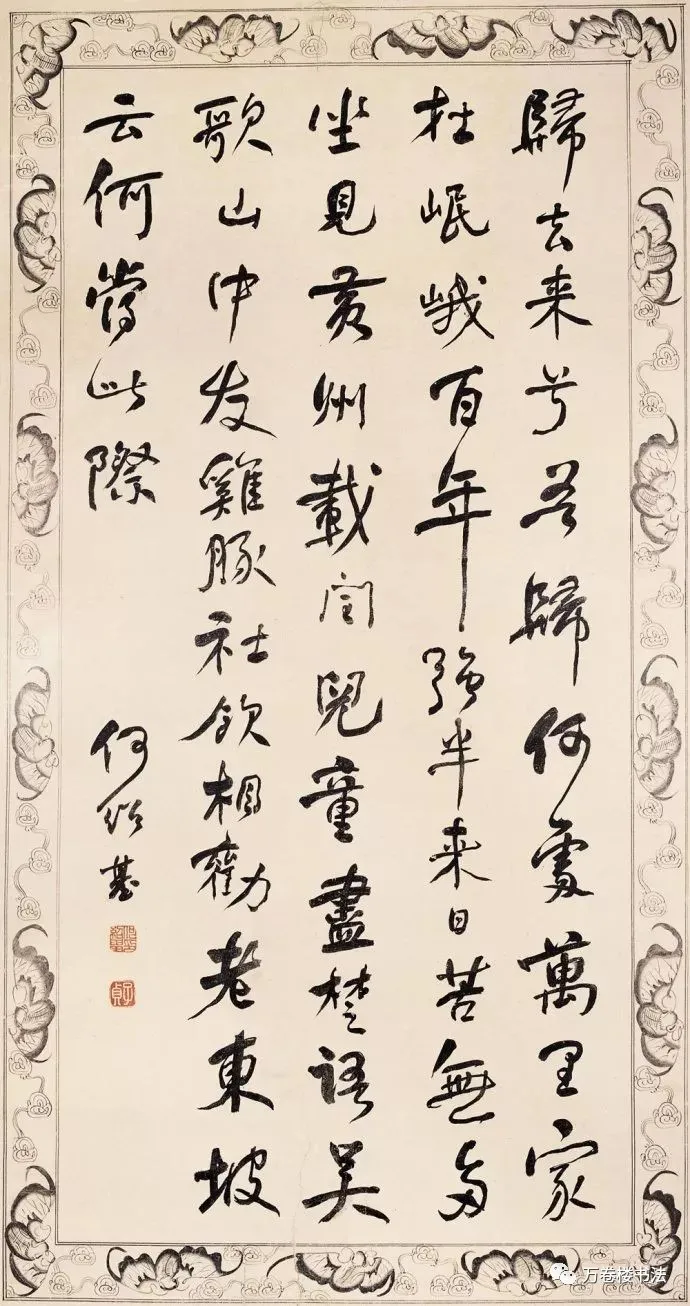 歸去来兮吾歸何處萬里家
在岷峨百年強半来日苦無多
坐見黄州載閏兒童盡楚語吳
歌山中友雞豚社飲相勸老東坡
云何當此際
何紹基
子貞
万卷楼书法